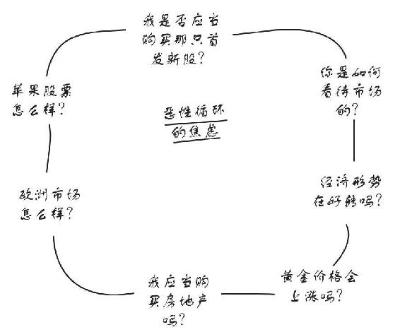 我是否应当
购买那只首
发新股?
你是如何
看待市场
的?
经济形势
在好转吗?
黄金价格会
上涨吗?
我应当购
买房地产
吗?
欧洲市场
怎么样?
苹果股票
怎么样?
恶性循环
的焦虑